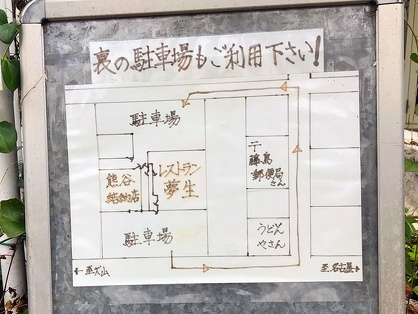 裏の駐車場もご利用下さい!
駐車場
〒
藤島
郵便局
さん
レストラン
夢生
熊谷
結納店
駐車場
うどん
やさん
至犬山
至名古屋